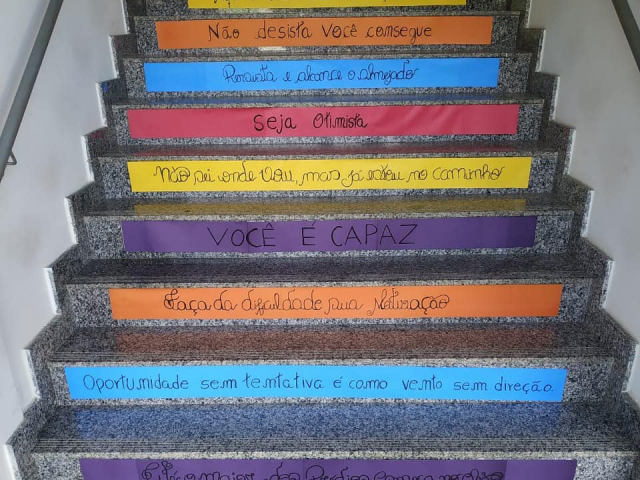 Não desista Você consegue
e alcance o almejado
Seja Otimista
Não sei onde Vou, mas já estou no caminho
VOCÊ É CAPAZ
Faça da dificuldade sua Motivação
Oportunidade sem tentativa é como vento sem direção.